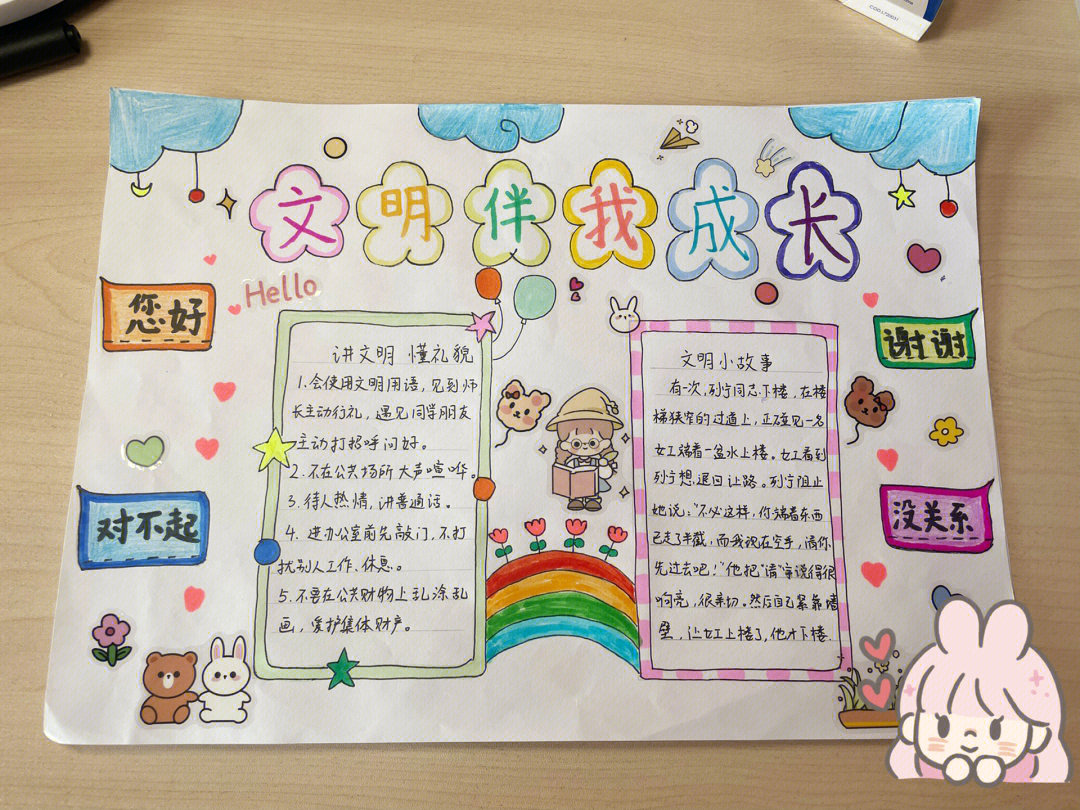 文明伴我成长
Hello
您好
谢谢
对不起
没关系
讲文明 懂礼貌
1.会使用文明用语，见到师
长主动行礼，遇见同学朋友
主动打招呼问好。
2.不在公共场所大声喧哗。
3.待人热情，讲普通话。
4.进办公室前先敲门，不打
扰别人工作、休息。
5.不要在公共财物上乱涂乱
画，爱护集体财产。
文明小故事
有一次，列宁同志下楼，在楼
梯狭窄的过道上，正碰见一名
女工端着一盆水上楼。女工看到
列宁想退回让路。列宁阻止
她说："不必这样，你端着东西
已走了半截，而我现在空手，请你
先过去吧！"他把"请"字说得很
响亮，很亲切。然后自己紧靠墙
壁，让女工上楼了，他才下楼.